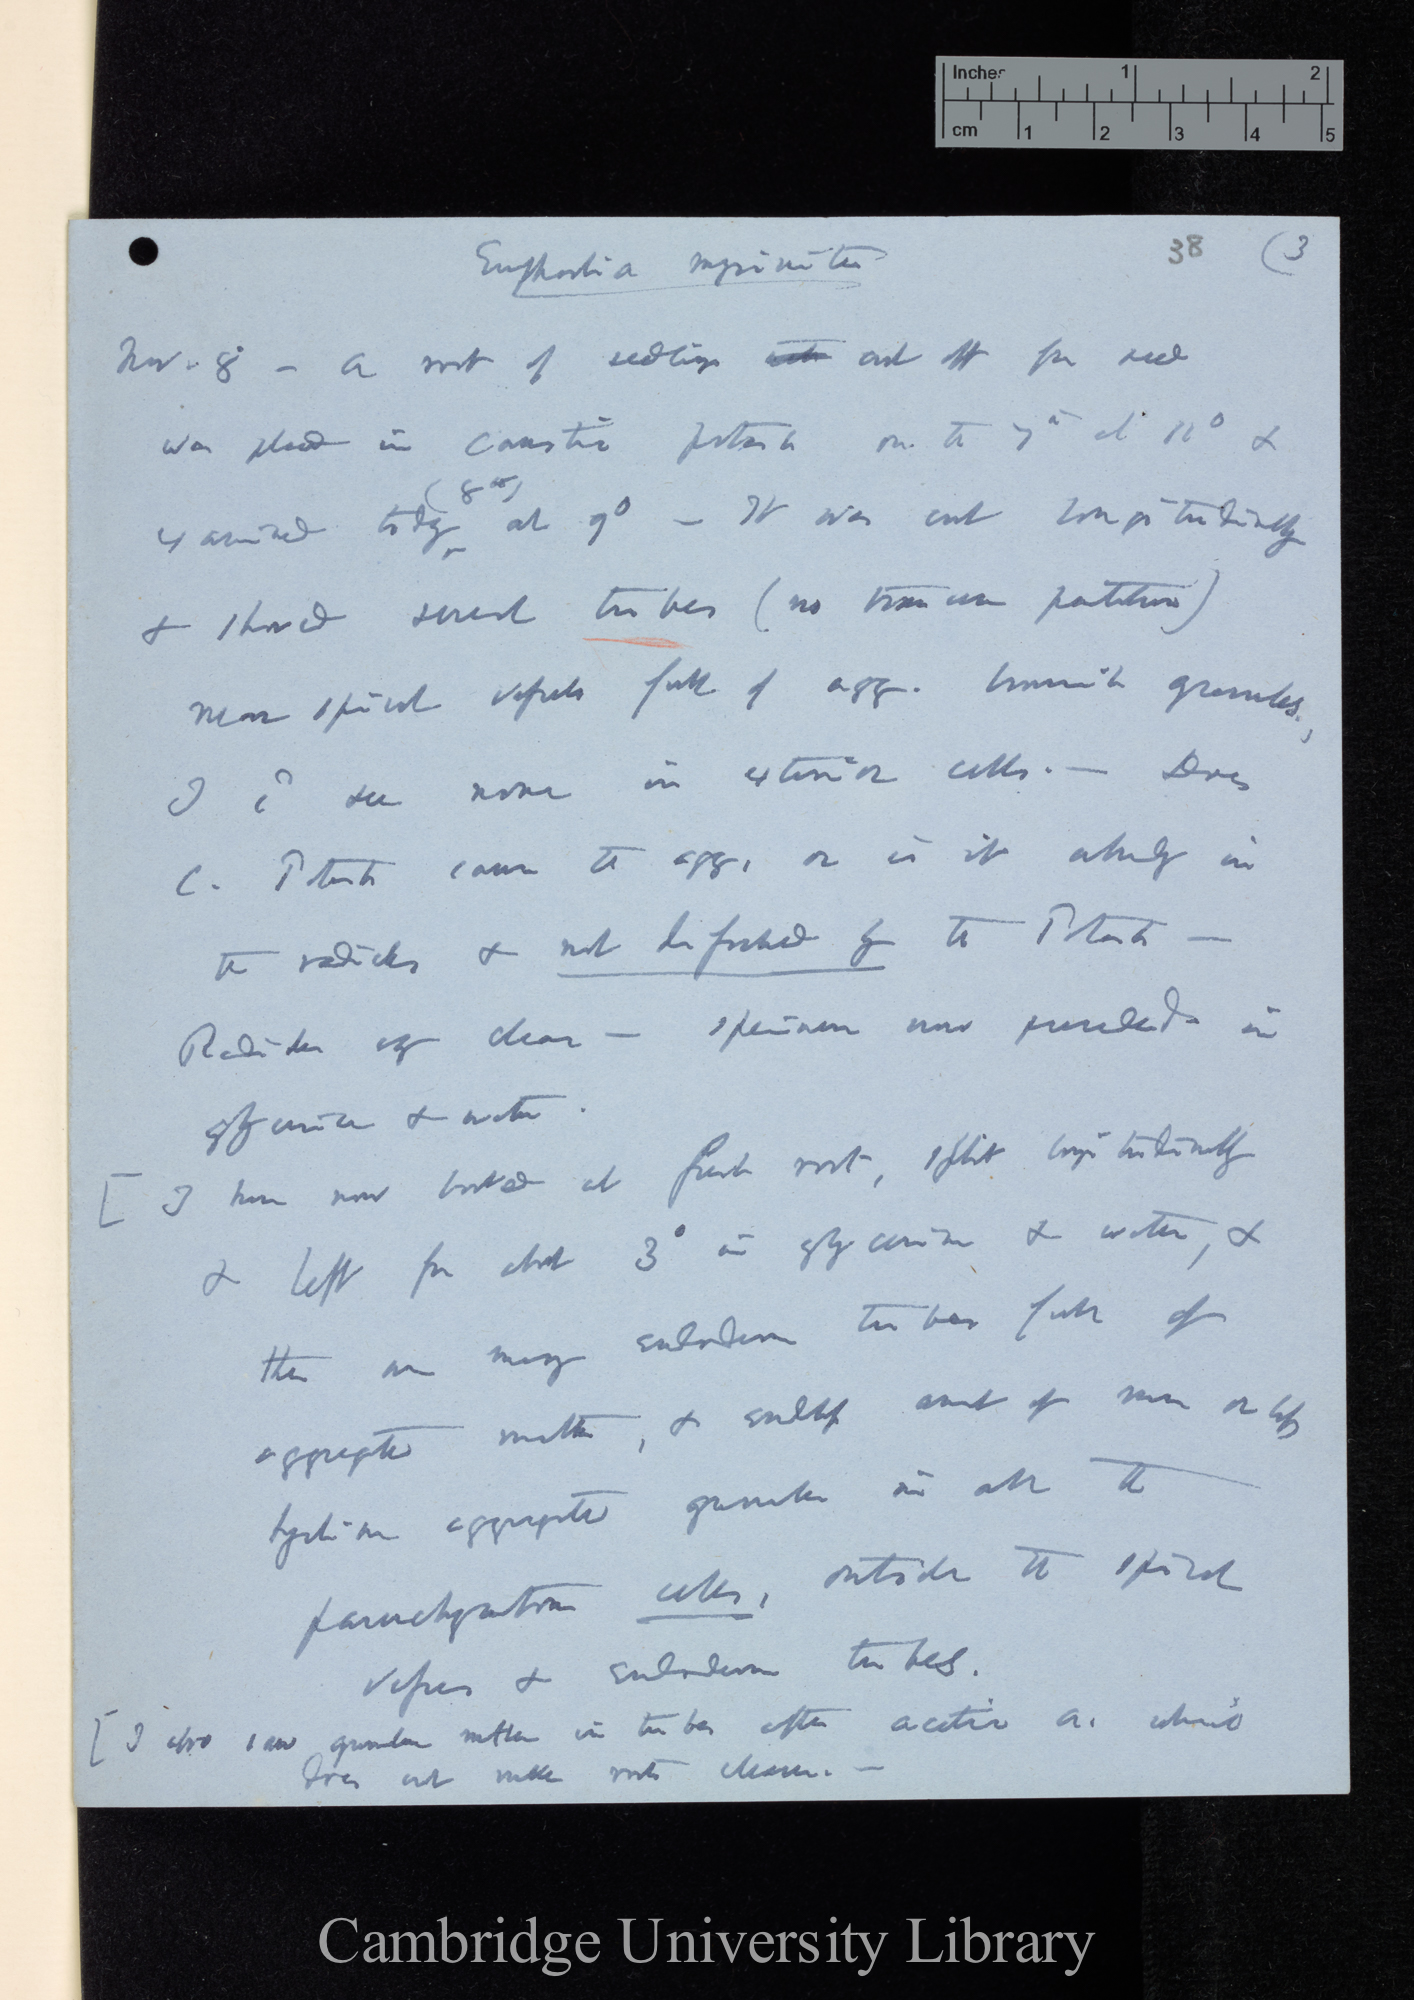 Inches 1 2
cm 1 2 3 4 5
38 (3
Euphorbia myrsinites
Nov. 8 — A root of seedlings cut off from seed
was placed in caustic potash on the 7th at 12° &
examined today (8th) at 9° — It was cut longitudinally
& showed several tubes (no transverse partitions)
near spiral vessels full of agg. brownish granules,
I could see none in exterior cells. — Does
C. Potash cause the agg, or is it already in
the radicles & not dissolved by the Potash —
Radicles very clear — specimen now preserved in
glycerine & water.
[I have now looked at fresh root, split longitudinally
& left for about 3° in glycerine & water, &
there are many tubes full of
aggregated matter, & small amount of more or less
hyaline aggregated granules in all the
parenchymatous cells, outside the spiral
vessels & tubes.
[I also saw granular matter in tubes after acetic a. which
does not make roots clearer. —
Cambridge University Library